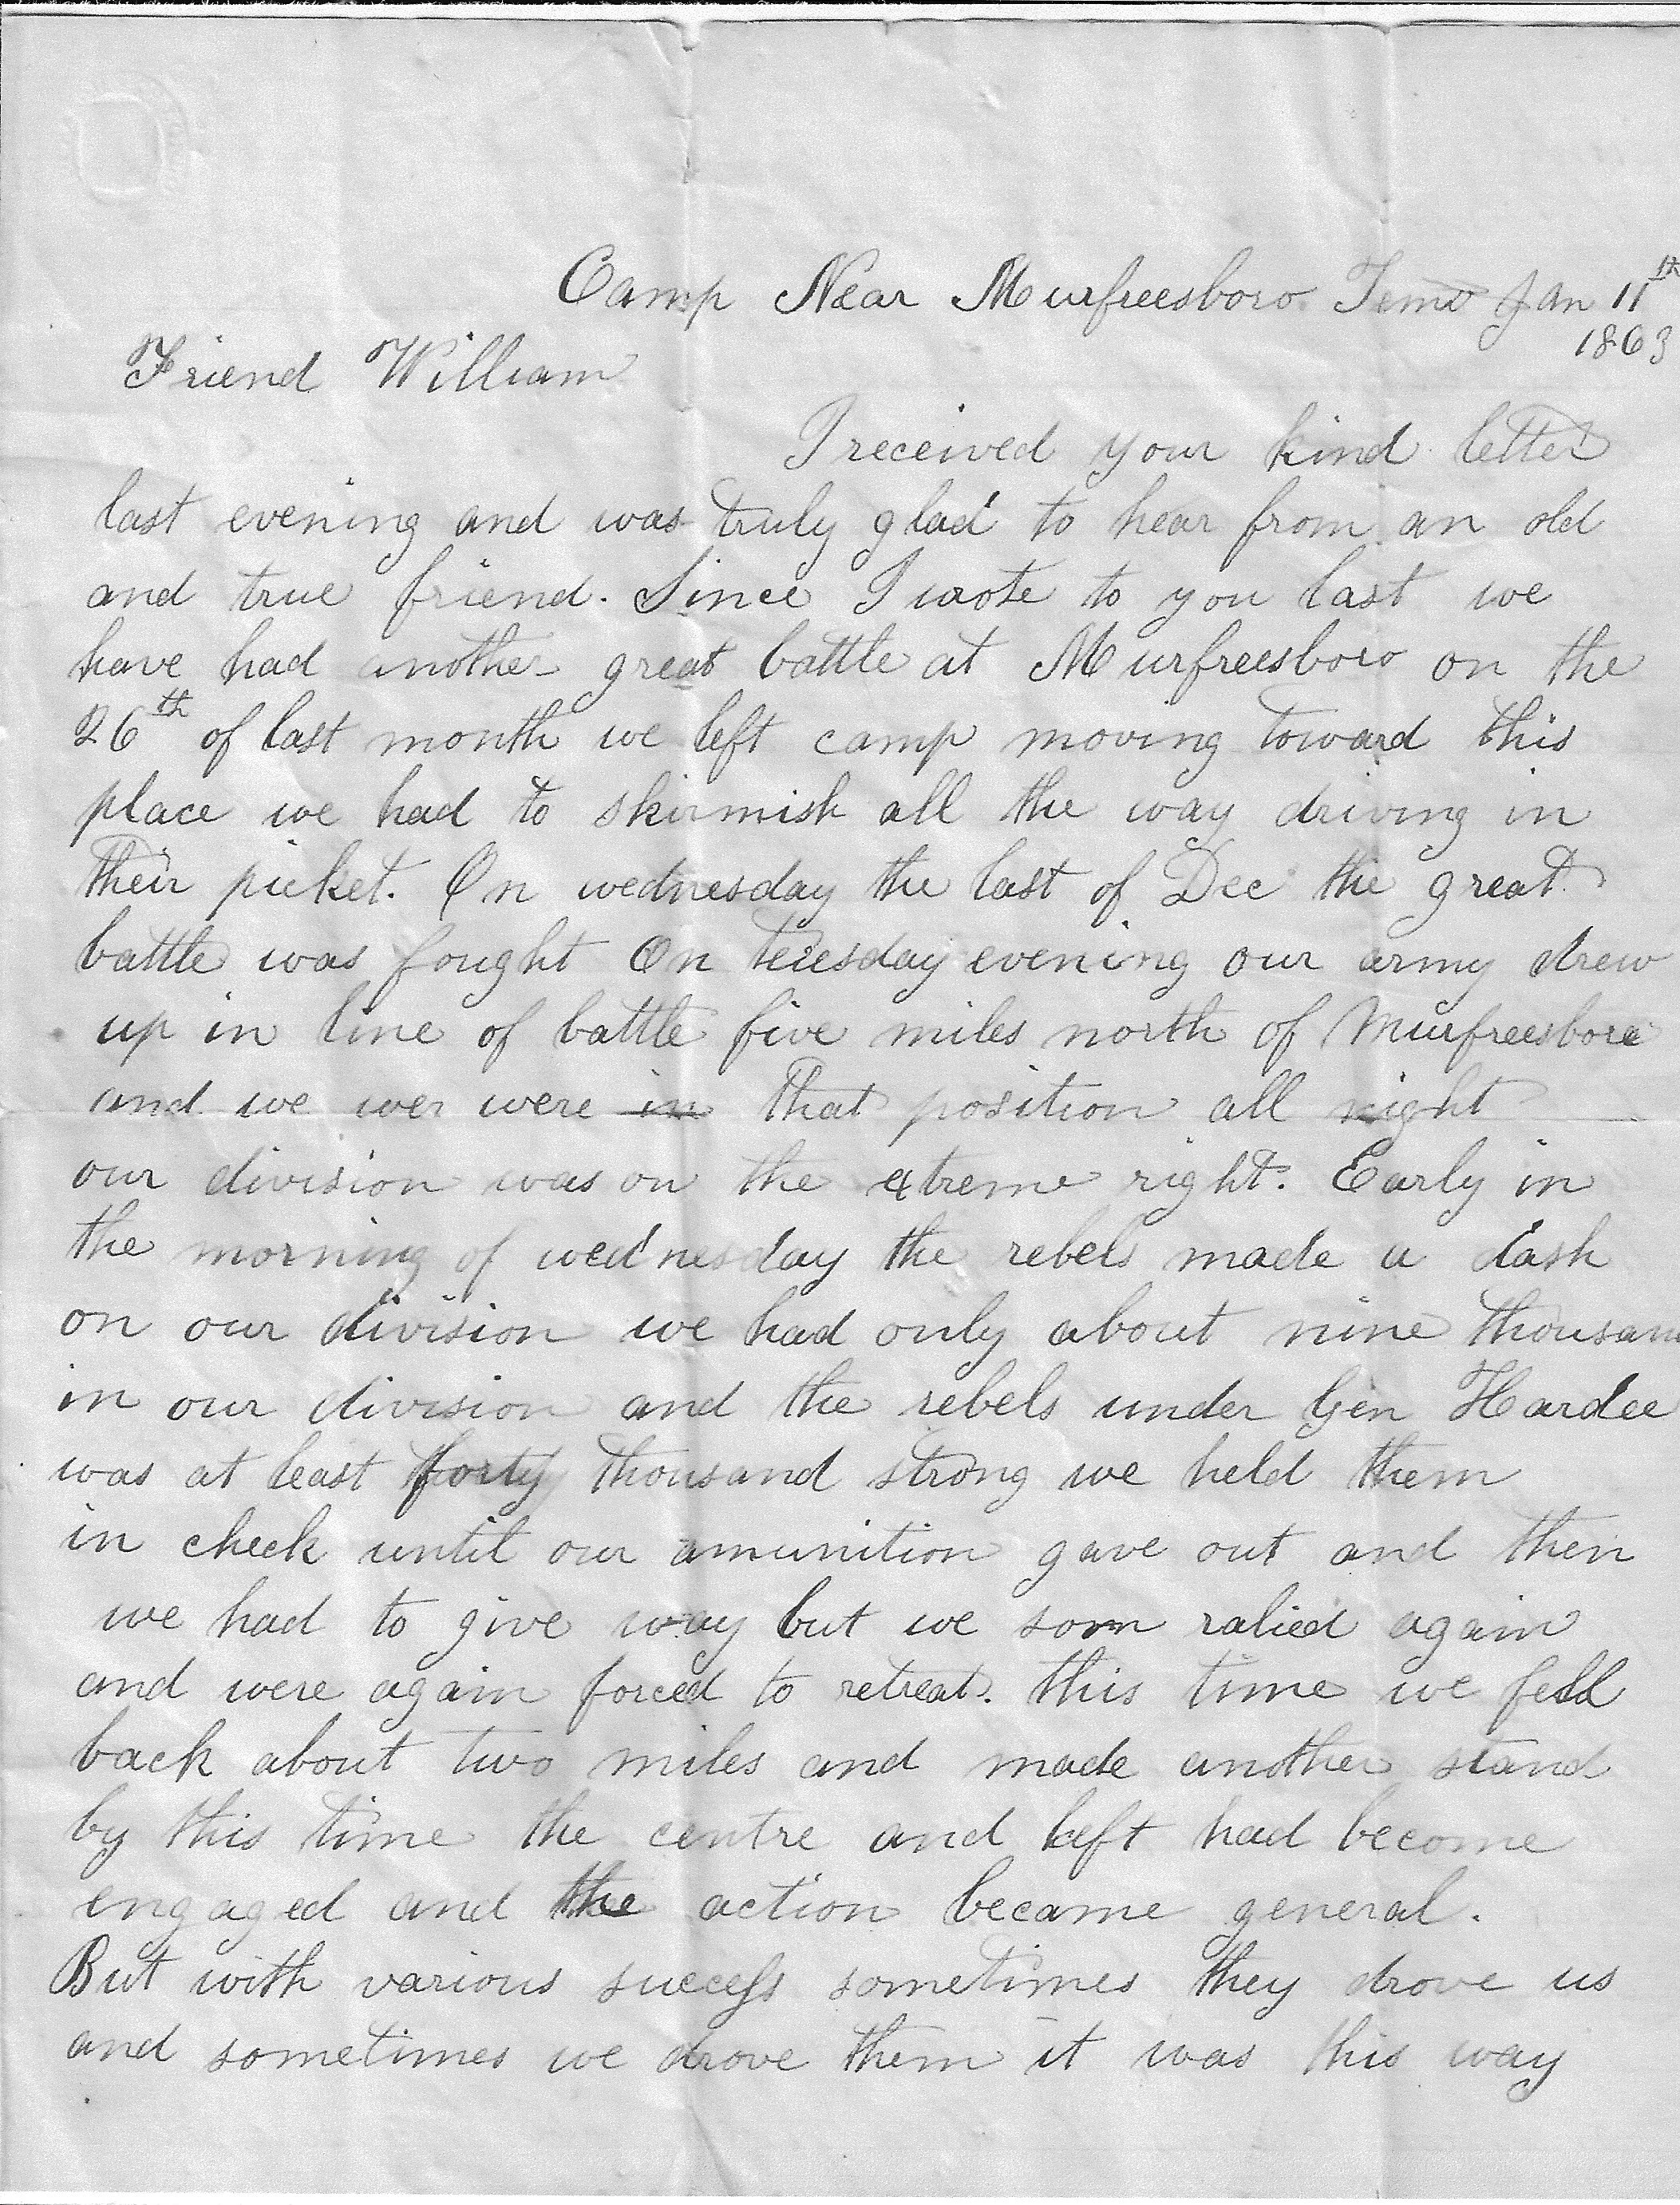 Camp Near Murfreesboro Tenn Jan 11th
1863
Friend William
I received your kind letter
last evening and was truly glad to hear from an old
and true friend. Since I wrote to you last we
have had another great battle at Murfreesboro on the
26th of last month we left camp moving toward this
place we had to skirmish all the way driving in
their picket. On wednesday the last of Dec the great
battle was fought On tuesday evening our army drew
up in line of battle five miles north of Murfreesboro
and we wer were in that position all night
our division was on the extreme right. Early in
the morning of wednesday the rebels made a dash
on our division we had only about nine thousan
in our division and the rebels under Gen Hardee
was at least forty thousand strong we held them
in check until our amunition gave out and then
we had to give way but we soon ralied again
and were again forced to retreat. this time we fell
back about two miles and made another stand
by this time the centre and left had become
engaged and the action became general.
But with various success sometimes they drove us
and sometimes we drove them it was this way